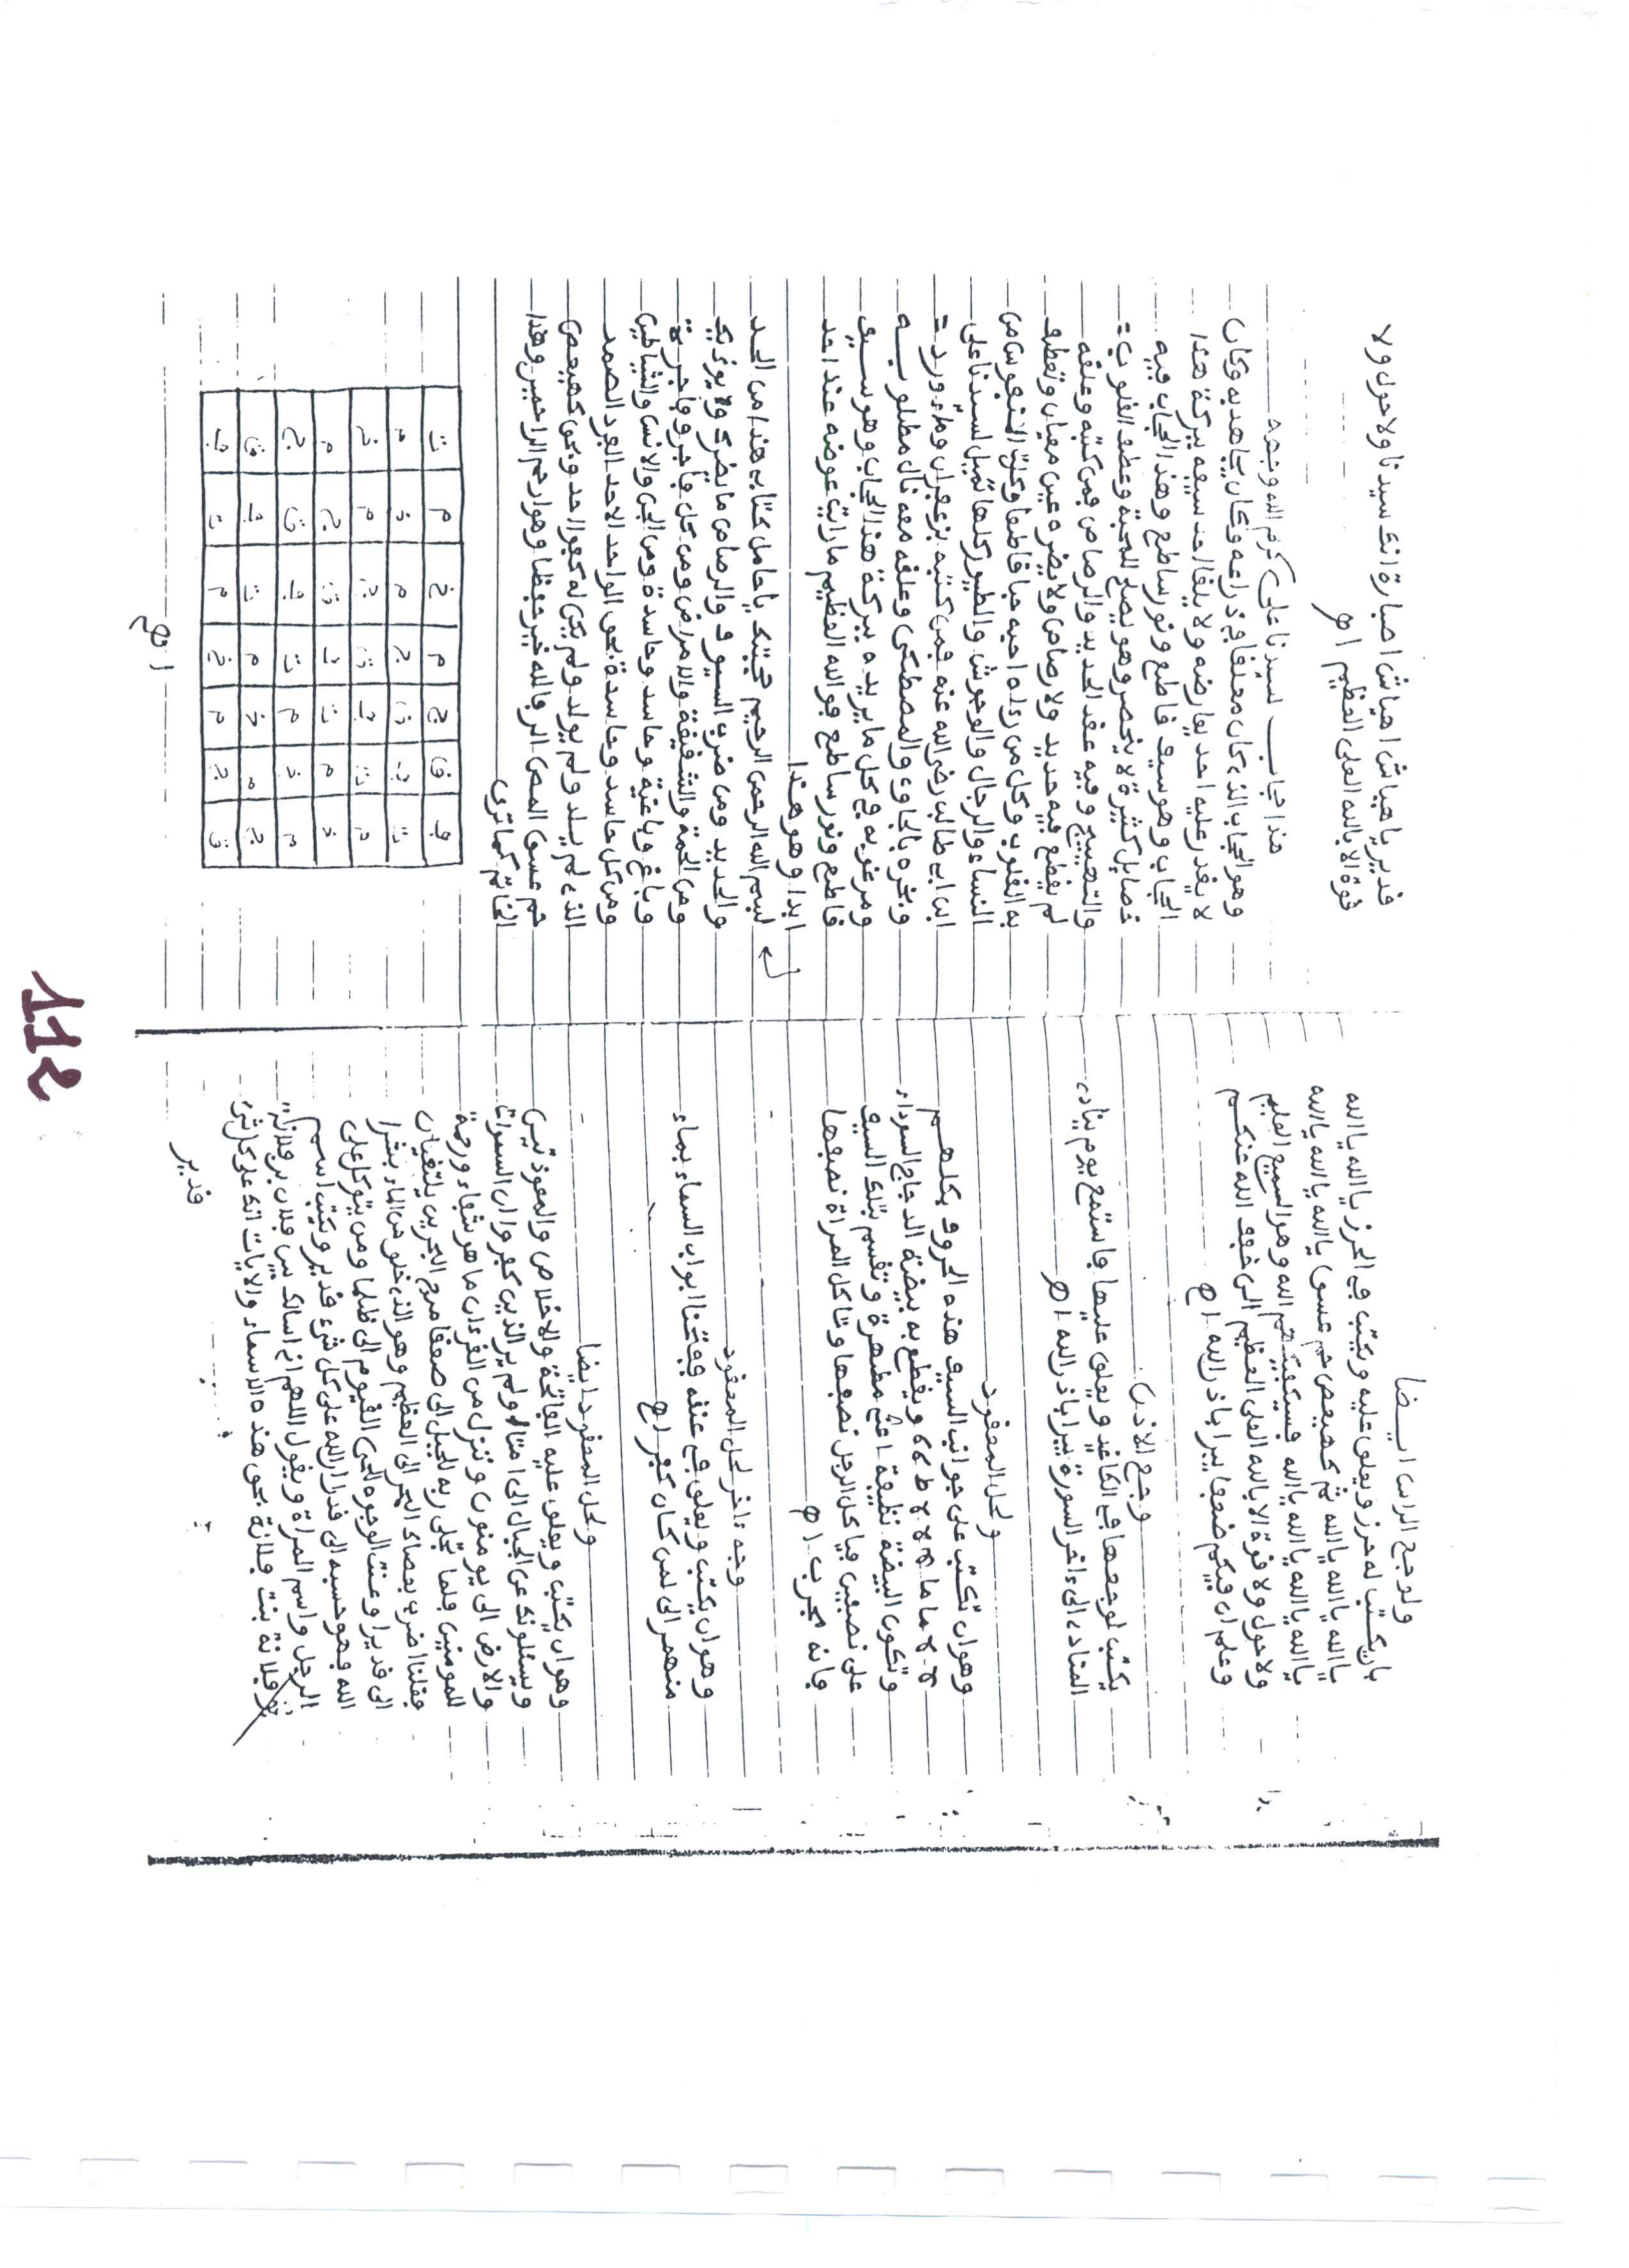 ولوجع الراس ايضا
بان يكتب له حرز ويعلق عليه ويكتب في الحرز يا الله يا الله
يا الله يا الله يا الله ثم كهيعص حم عسق يا الله يا الله يا الله
يا الله يا الله يا الله يا الله فسيكفيكهم الله وهو السميع العليم
ولا حول ولا قوة الا بالله العلي العظيم الن خفف الله عنكم
وعلم ان فيكم ضعفا يبرا باذن الله اهـ
وجع الاذن
يكتب لوجعها في الكاغد ويعلق عليها واستمع يوم يناد
المناد الى ءاخر السورة يبرا باذن الله اهـ
ولحل المعقود
وهو ان تكتب على جوانب السيف هذه الحروف بكلهم
ويقطع به بيضة الدجاج السوداء
وتكون البيضة نظيفة مطهرة وتقسم بتلك السيف
على نصفين فياكل الرجل نصفها وتاكل المراة نصفها
فانه مجرب اهـ
وجه ءاخر لحل المعقود
وهو ان يكتب ويعلق في عنقه ففتحنا ابواب السماء بماء
منهمر الى لمن كان كفر اهـ
ولحل المعقود ايضا
وهو ان يكتب ويعلق عليه الفاتحة والاخلاص والمعوذتين
ويسئلونك عن الجبال الى امتا اولم ير الذين كفروا ان السموات
والارض الى يومنون وننزل من القرءان ما هو شفاء ورحمة
للمومنين فلما تجلى ربه للجبل الى صعقا مرج البحرين يلتقيان
فقلنا اضرب بعصاك البحر الى العظيم وهو الذي خلق من الماء بشرا
الى قديرا وعنت الوجوه للحي القيوم الى ظلما ومن يتوكل على
الله فهو حسبه الى قدرا ان الله على كل شيء قدير ويكتب اسم
الرجل واسم المراة ويقول اللهم اني اسالك بين فلان بن فلانة
وفلانة بنت فلانة بحق هذه الاسماء والايات انك على كل شيء
قدير
قدير يا هياش اهياش اصبارة انك سيدنا ولا حول ولا
قوة الا بالله العلي العظيم اهـ
هذا حجاب لسيدنا علي كرم الله وجهه
وهو الحجاب الذي كان معلقا في ذراعه وكان يجاهد به وكان
لا يقدر عليه احد يعارضه ولا يلقا احد سيفه ببركة هذا
الحجاب وهو سيف قاطع ونور ساطع وهذا الحجاب فيه
خصايل كثيرة لا تحصر وهو يصلح للمحبة وعطف القلوب
والتهييج وفيه عقد الحديد والرصاص فمن كتبه وعلقه
لم يقطع فيه حديد ولا رصاص ولا يضره عين معيان وتعطف
به القلوب وكل من رءاه احبه حبا قاطعا وكلت النفوس من
النساء والرجال والوحوش والطيور كلها تميل لسيدنا علي
ابن ابي طالب رضي الله عنه فمن كتبه بزعفران وماء ورد
وبخره بالجاوي والمصطكى وعلقه معه نال مطلوبه
ومرغوبه في كل ما يريده ببركة هذا الحجاب وهو سيف
قاطع ونور ساطع فوالله العظيم ما رايت عوضه عند احد
ابدا وهو هذا
بسم الله الرحمن الرحيم حجبتك يا حامل كتابي هذا من الحد
والحديد ومن ضرب السيوف والرصاص ما يضرك ولا يوذيك
ومن الحمة والشقيقة والامراض ومن كل فاجر وفاجرة
وباغ وباغية وحاسد وحاسدة ومن الجن والانس والشياطين
ومن كل حاسد وحاسدة بحق الواحد الاحد الفرد الصمد
الذي لم يلد ولم يولد ولم يكن له كفؤا احد وبحق كهيعص
حم عسق المص الر فالله خير حفظا وهو ارحم الراحمين وهذا
الخاتم كما ترى
ف ق ج م خ م ت
ت ف ق ج م خ م
م ت ف ق ج م خ
خ م ت ف ق ج م
م خ م ت ف ق ج
ج م خ م ت ف ق
ق ج م خ م ت ف
اهـ
112